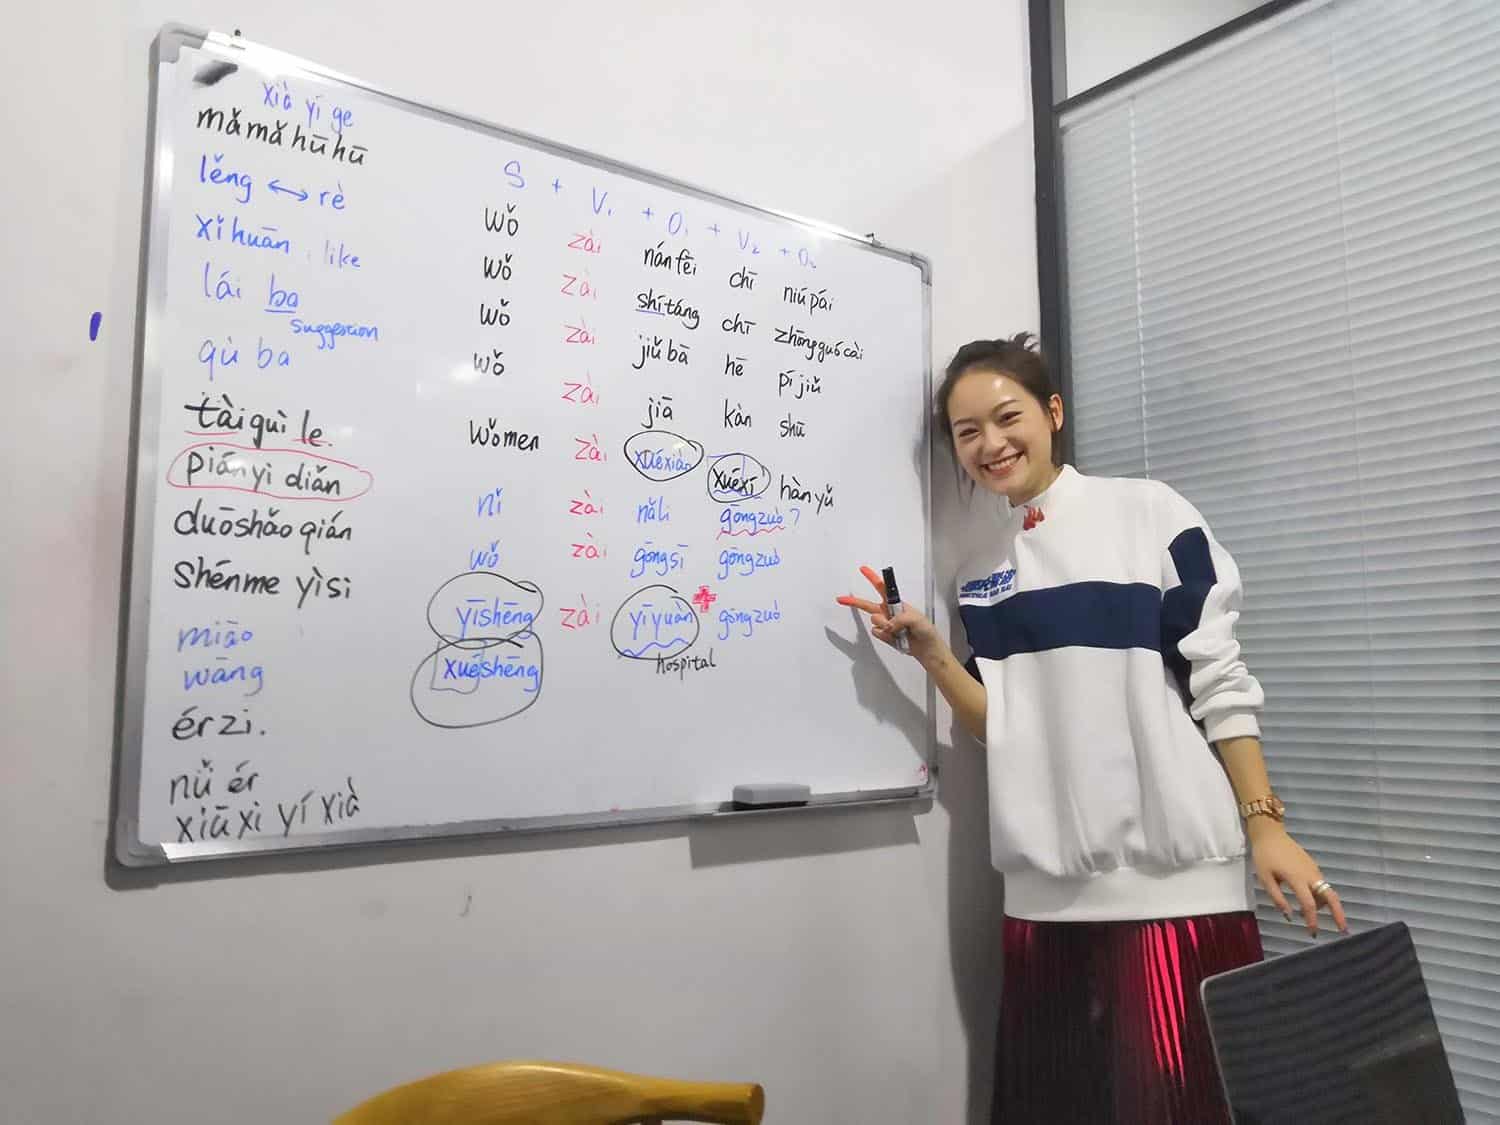 xià yí ge
mǎmǎhūhū
lěng ↔ rè
xǐhuān, like
lái ba
suggestion
qù ba
tài guì le.
piányi diǎn
duōshǎo qián
shénme yìsi
miāo
wāng
érzi.
nǚ ér
xiūxi yí xià
S + V₁ + O₁ + V₂ + O₂
wǒ zài nánfēi chī niúpái
wǒ zài shítáng chī zhōngguócài
wǒ zài jiǔbā hē píjiǔ
wǒ zài jiā kàn shū
wǒmen zài xuéxiào xuéxí hànyǔ
nǐ zài nǎli gōngzuò?
wǒ zài gōngsī gōngzuò
yīshēng zài yīyuàn gōngzuò
hospital
xuéshēng